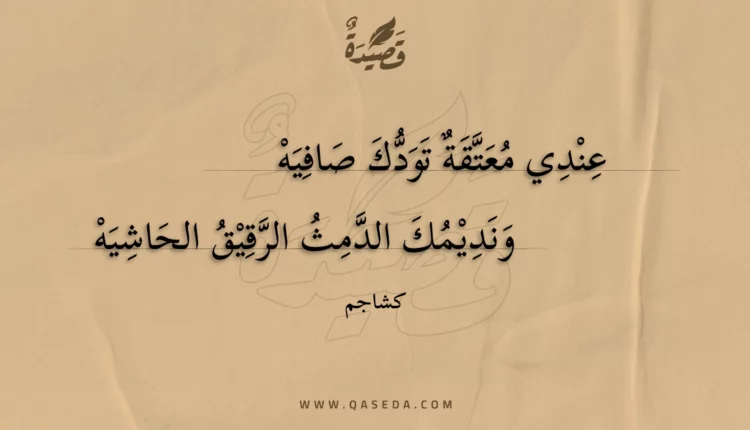 قَصِيْدَةٌ
عِنْدِي مُعَتَّقَةٌ تَوَدُّكَ صَافِيَهْ
وَنَدِيْمُكَ الدَّمِثُ الرَّقِيْقُ الحَاشِيَهْ
كشاجم
WWW.QASEDA.COM